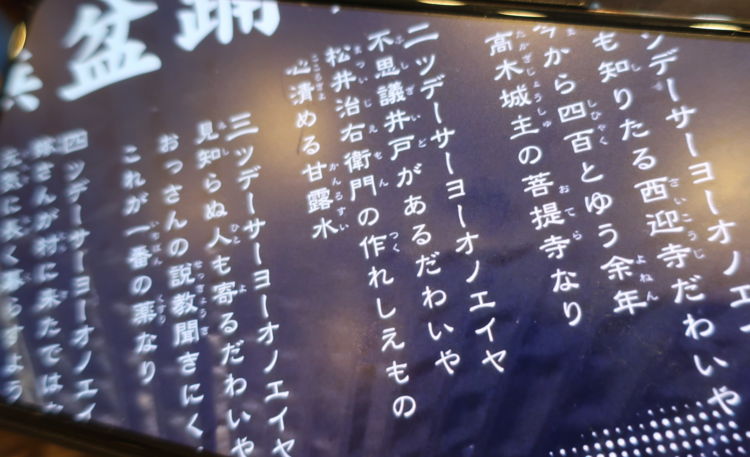 盆踊
ツデーサーヨーオノエイヤ
も知りたる西迎寺だわいや
今から四百とゆう余年
高木城主の菩提寺なり
二ツデーサーヨーオノエイヤ
不思議井戸があるだわいや
松井治右衛門の作れしえもの
心清める甘露水
三ツデーサーヨーオノエイヤ
見知らぬ人も寄るだわいや
おっさんの説教聞きにく
これが一番の薬なり
四ツデーサーヨーオノエイ
さんが村に来たでは
元気に長く暮らすよう